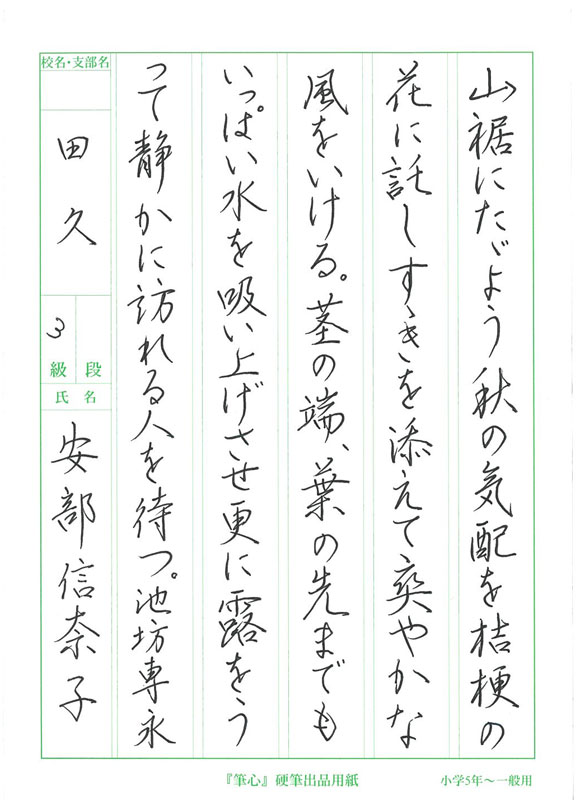 山裾にたゞよう秋の気配を桔梗の
花に託しすゝきを添えて爽やかな
風をいける。茎の端、葉の先までも
いっぱい水を吸い上げさせ更に露をう
って静かに訪れる人を待つ。池坊専永
校名・支部名
田久
3
級 段
氏名
安部信奈子
『筆心』硬筆出品用紙
小学5年〜一般用